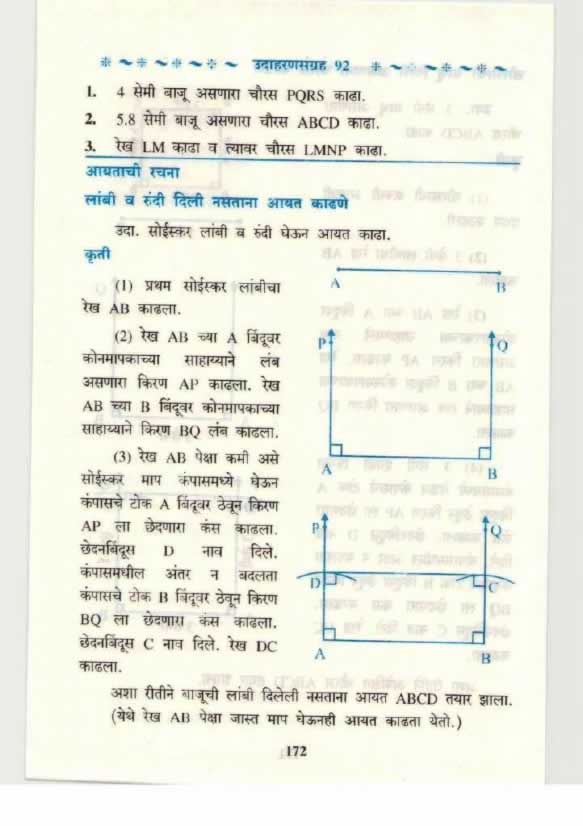 उदाहरणसंग्रह 92
1. 4 सेमी बाजू असणारा चौरस PQRS काढा.
2. 5.8 सेमी बाजू असणारा चौरस ABCD काढा.
3. रेख LM काढा व त्यावर चौरस LMNP काढा.
आयताची रचना
लांबी व रुंदी दिली नसताना आयत काढणे
उदा. सोईस्कर लांबी व रुंदी घेऊन आयत काढा.
कृती
(1) प्रथम सोईस्कर लांबीचा
रेख AB काढला.
A B
(2) रेख AB च्या A बिंदूवर
कोनमापकाच्या साहाय्याने लंब
असणारा किरण AP काढला. रेख
AB च्या B बिंदूवर कोनमापकाच्या
साहाय्याने किरण BQ लंब काढला.
P Q
A B
(3) रेख AB पेक्षा कमी असे
सोईस्कर माप कंपासमध्ये घेऊन
कंपासचे टोक A बिंदूवर ठेवून किरण
AP ला छेदणारा कंस काढला.
छेदनबिंदूस D नाव दिले.
कंपासमधील अंतर न बदलता
कंपासचे टोक B बिंदूवर ठेवून किरण
BQ ला छेदणारा कंस काढला.
छेदनबिंदूस C नाव दिले. रेख DC
काढला.
P Q
D C
A B
अशा रीतीने बाजूची लांबी दिलेली नसताना आयत ABCD तयार झाला.
(येथे रेख AB पेक्षा जास्त माप घेऊनही आयत काढता येतो.)
172